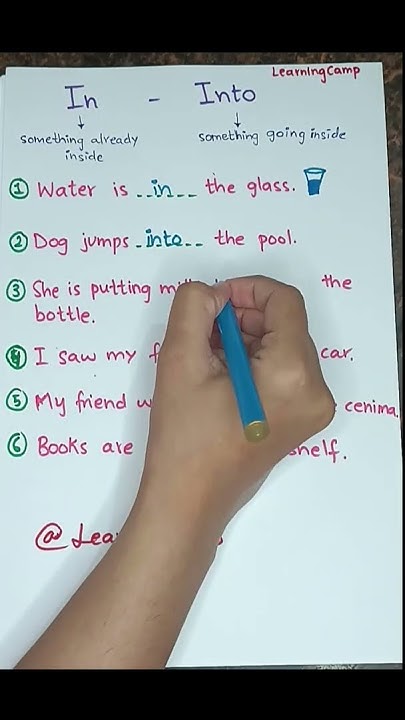 LearningCamp
In - Into
something already inside
something going inside
① Water is __in__ the glass.
② Dog jumps _into__ the pool.
③ She is putting the
bottle.
④ I saw my car.
⑤ My friend cenima.
⑥ Books are